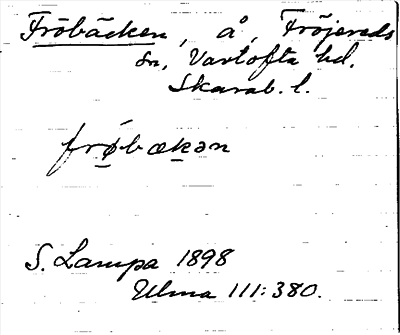 Fröbäcken, å, Fröjereds
sn, Vartofta hd.
Skarab. l.
frøbækən
S. Lampa 1898
Ulma 111:380.